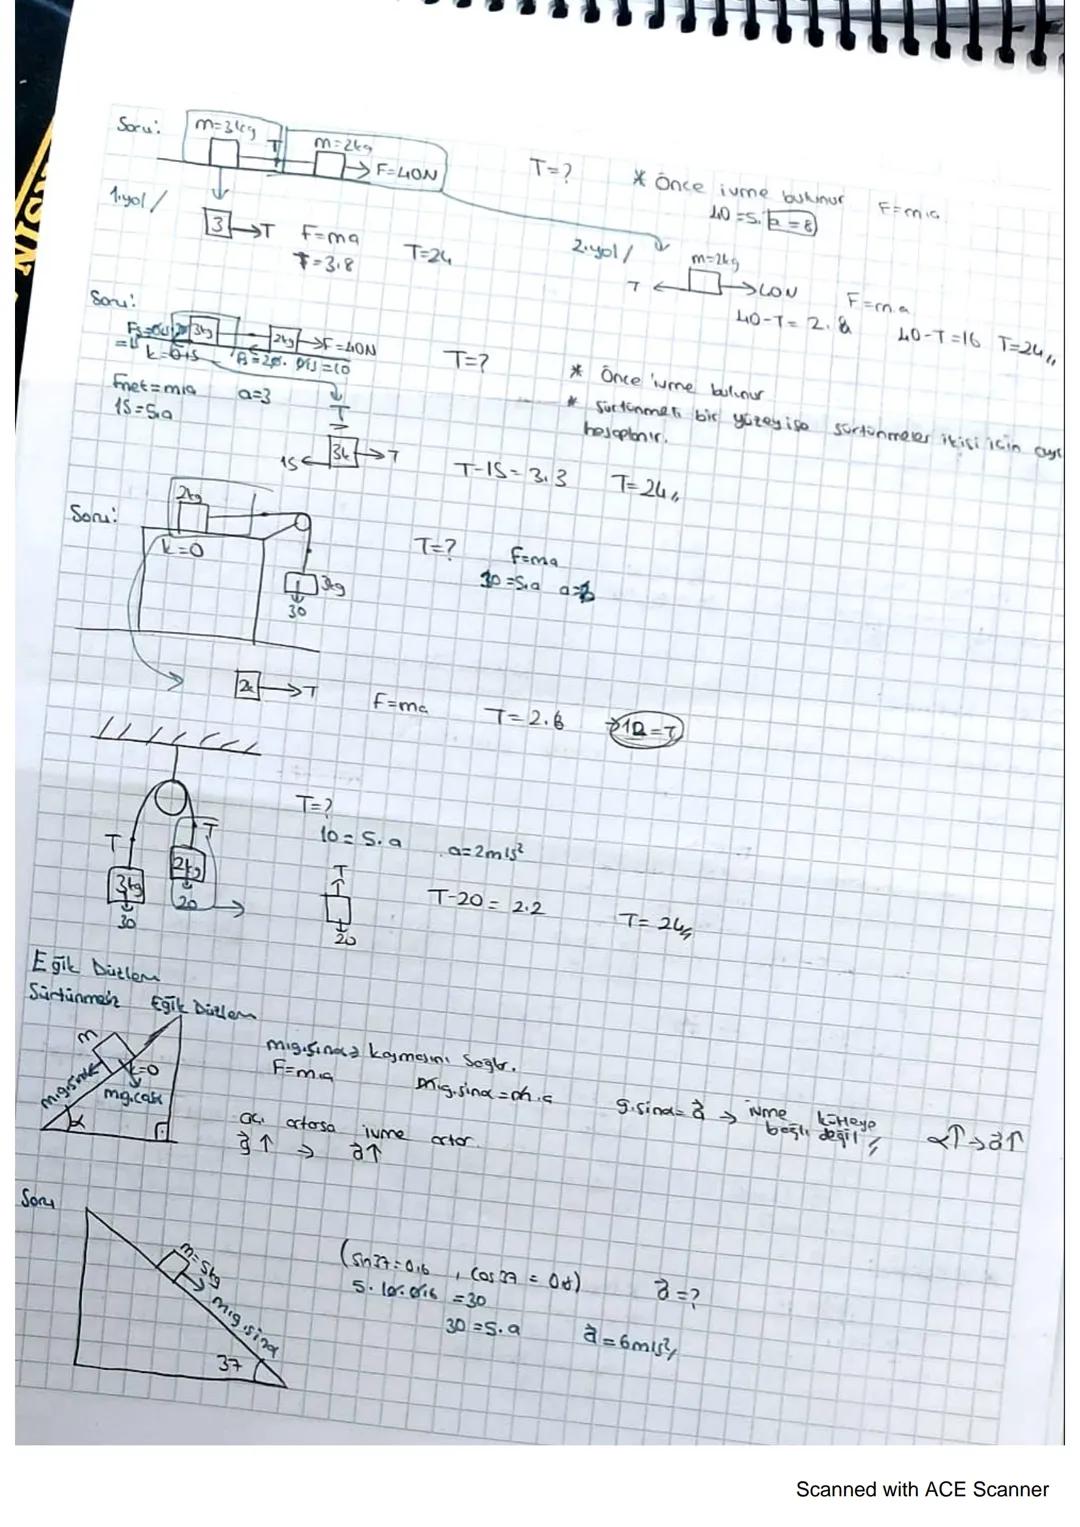 Soru:
m=3kg
T
m=2kg
F=40N
T=?
* Önce ivme bulunur F=m.a
40=5. a=8
1.yol/
3 →T F=ma T=24
T=3.8
2.yol/
m=2kg
T ← → 40N F=m.a
40-T= 2.8 40-T=16 T=24
Soru:
3kg 2kg →F=40N T=?
k=0,5 =10
* Önce ivme bulunur
* Sürtünmeli bir yüzey ise sürtünmeler ikisi için ayrı
hesaplanır.
Fnet=m.a a=3
15=5.a
T
15← 3k →T T-15=3.3 T=24
Soru:
2kg
k=0
3kg
30
T=? F=ma
30=5.a a=6
2k →T F=ma T=2.6 →12=T
T=?
10=5.a a=2m/s²
T T
3kg 2kg
30 20
T
20
T-20=2.2 T=24
Eğik Düzlem
Sürtünmesiz Eğik Düzlem
m
k=0
m.g.sinα
mg.cosα
α
m.g.sinα kaymasını sağlar.
F=m.a m.g.sinα=m.a g.sinα=a → ivme kütleye
bağlı değil α↑→a↑
açı artarsa ivme artar.
g↑ → a↑
Soru
m=5kg
m.g.sinα
37
(sin37=0,6 , cos37=0,8) a=?
5.10.0,6=30
30=5.a a=6m/s²
Scanned with ACE Scanner